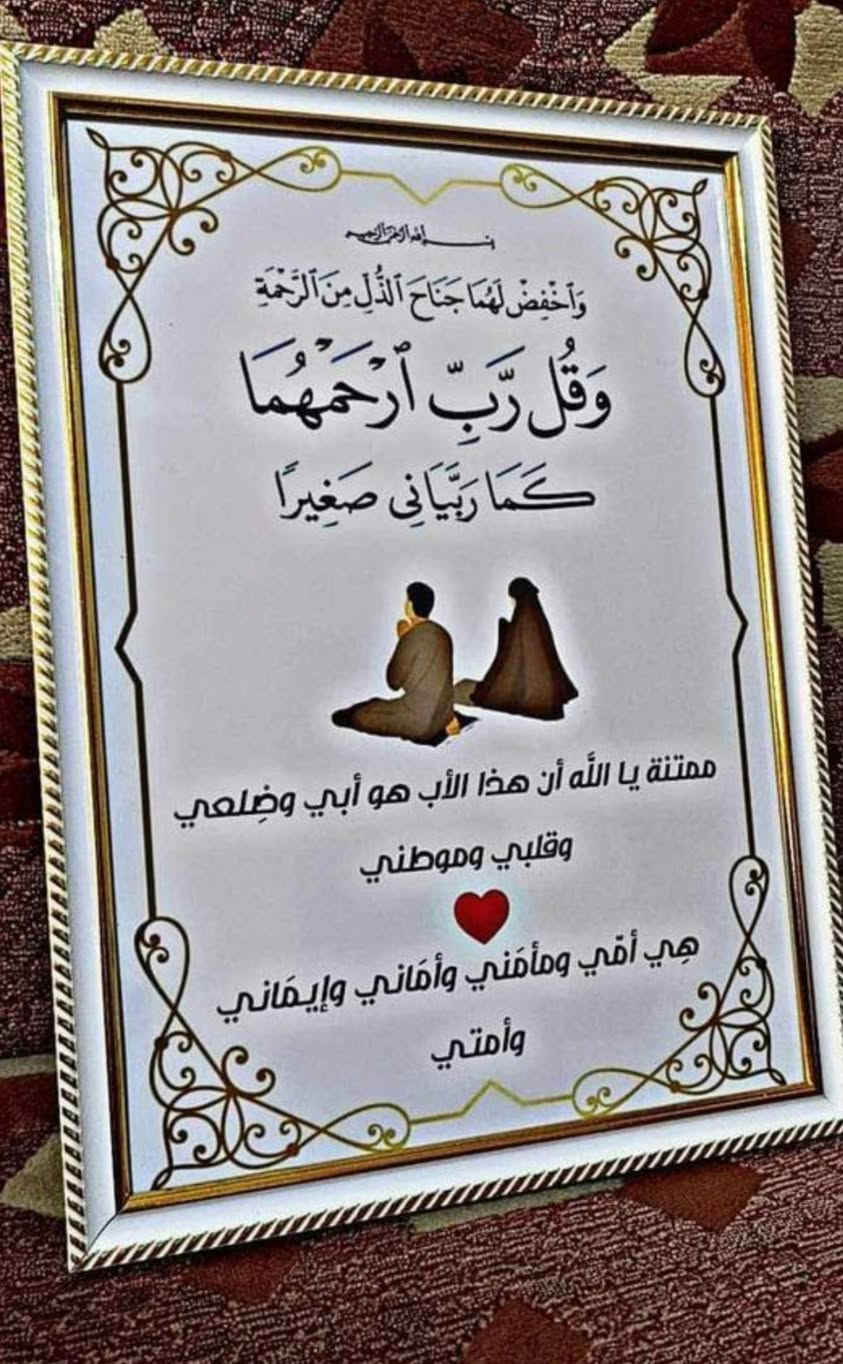 بسم الله الرحمن الرحيم
وَٱخْفِضْ لَهُمَا جَنَاحَ ٱلذُّلِّ مِنَ ٱلرَّحْمَةِ
وَقُل رَّبِّ ٱرْحَمْهُمَا
كَمَا رَبَّيَانِى صَغِيرًا
ممتنة يا الله أن هذا الأب هو أبي وضِلعي
وقلبي وموطني
هِي أمّي ومأمَني وأمَاني وإيمَاني
وأمتي